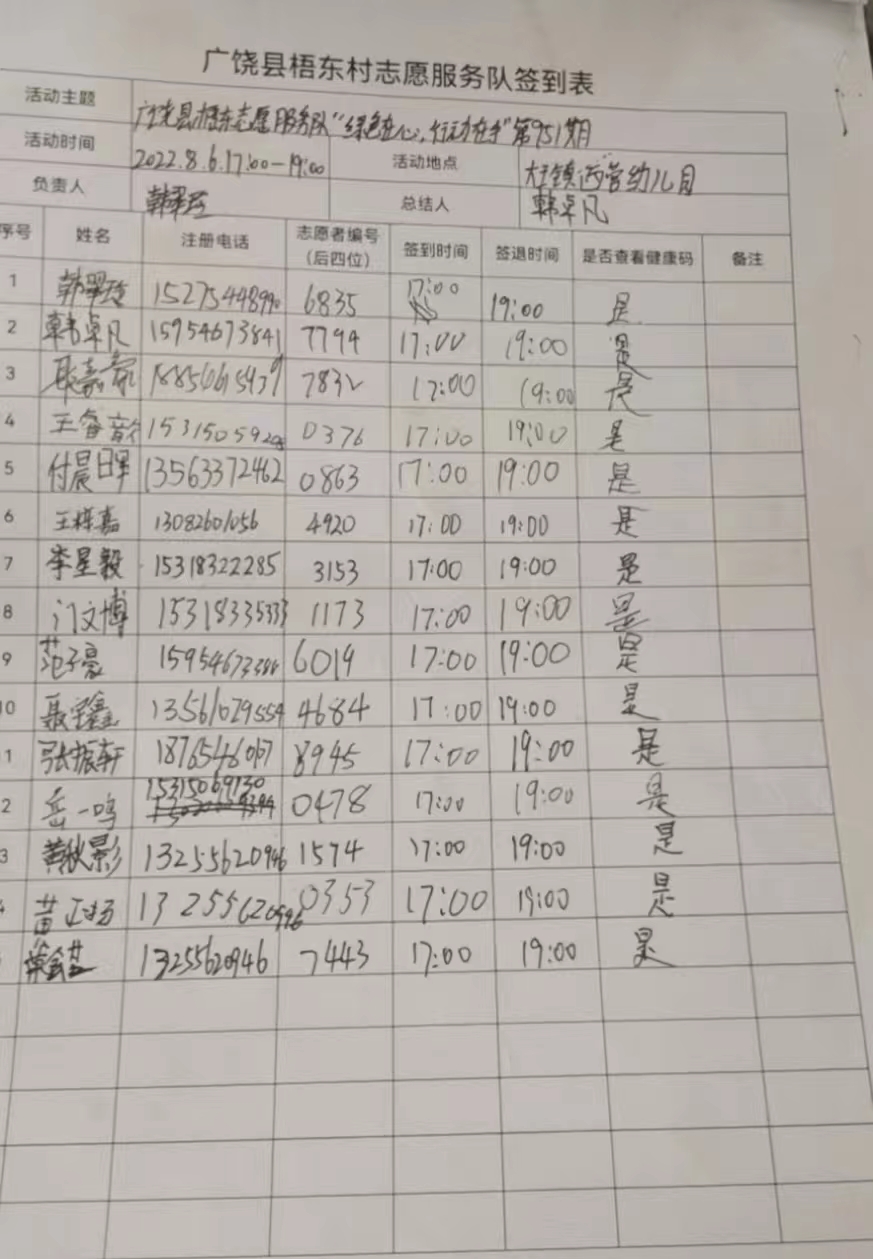 广饶县梧东村志愿服务队签到表
活动主题 广饶县梧东志愿服务队"绿色在心,行动在手"第951期
活动时间 2022.8.6.17:00-19:00 活动地点 大王镇西营幼儿园
负责人 韩翠玲 总结人 韩卓凡
序号 姓名 注册电话 志愿者编号（后四位） 签到时间 签退时间 是否查看健康码 备注
1 韩翠玲 15275448990 6835 17:00 19:00 是
2 韩卓凡 15954673841 7794 17:00 19:00 是
3 耿嘉豪 7832 17:00 19:00 是
4 王睿 0376 17:00 19:00 是
5 付晨 13563372462 0863 17:00 19:00 是
6 王梓嘉 13082601056 4920 17:00 19:00 是
7 李星毅 15318322285 3153 17:00 19:00 是
8 门文博 15318335333 1173 17:00 19:00 是
9 范子豪 15954673386 6019 17:00 19:00 是
10 聂宝鑫 13561029554 4684 17:00 19:00 是
1 张振轩 18765446017 8945 17:00 19:00 是
2 岳一鸣 15315069130 0478 17:00 19:00 是
3 黄秋影 13255620946 1574 17:00 19:00 是
4 苗 13255620946 0353 17:00 19:00 是
13255620946 7443 17:00 19:00 是